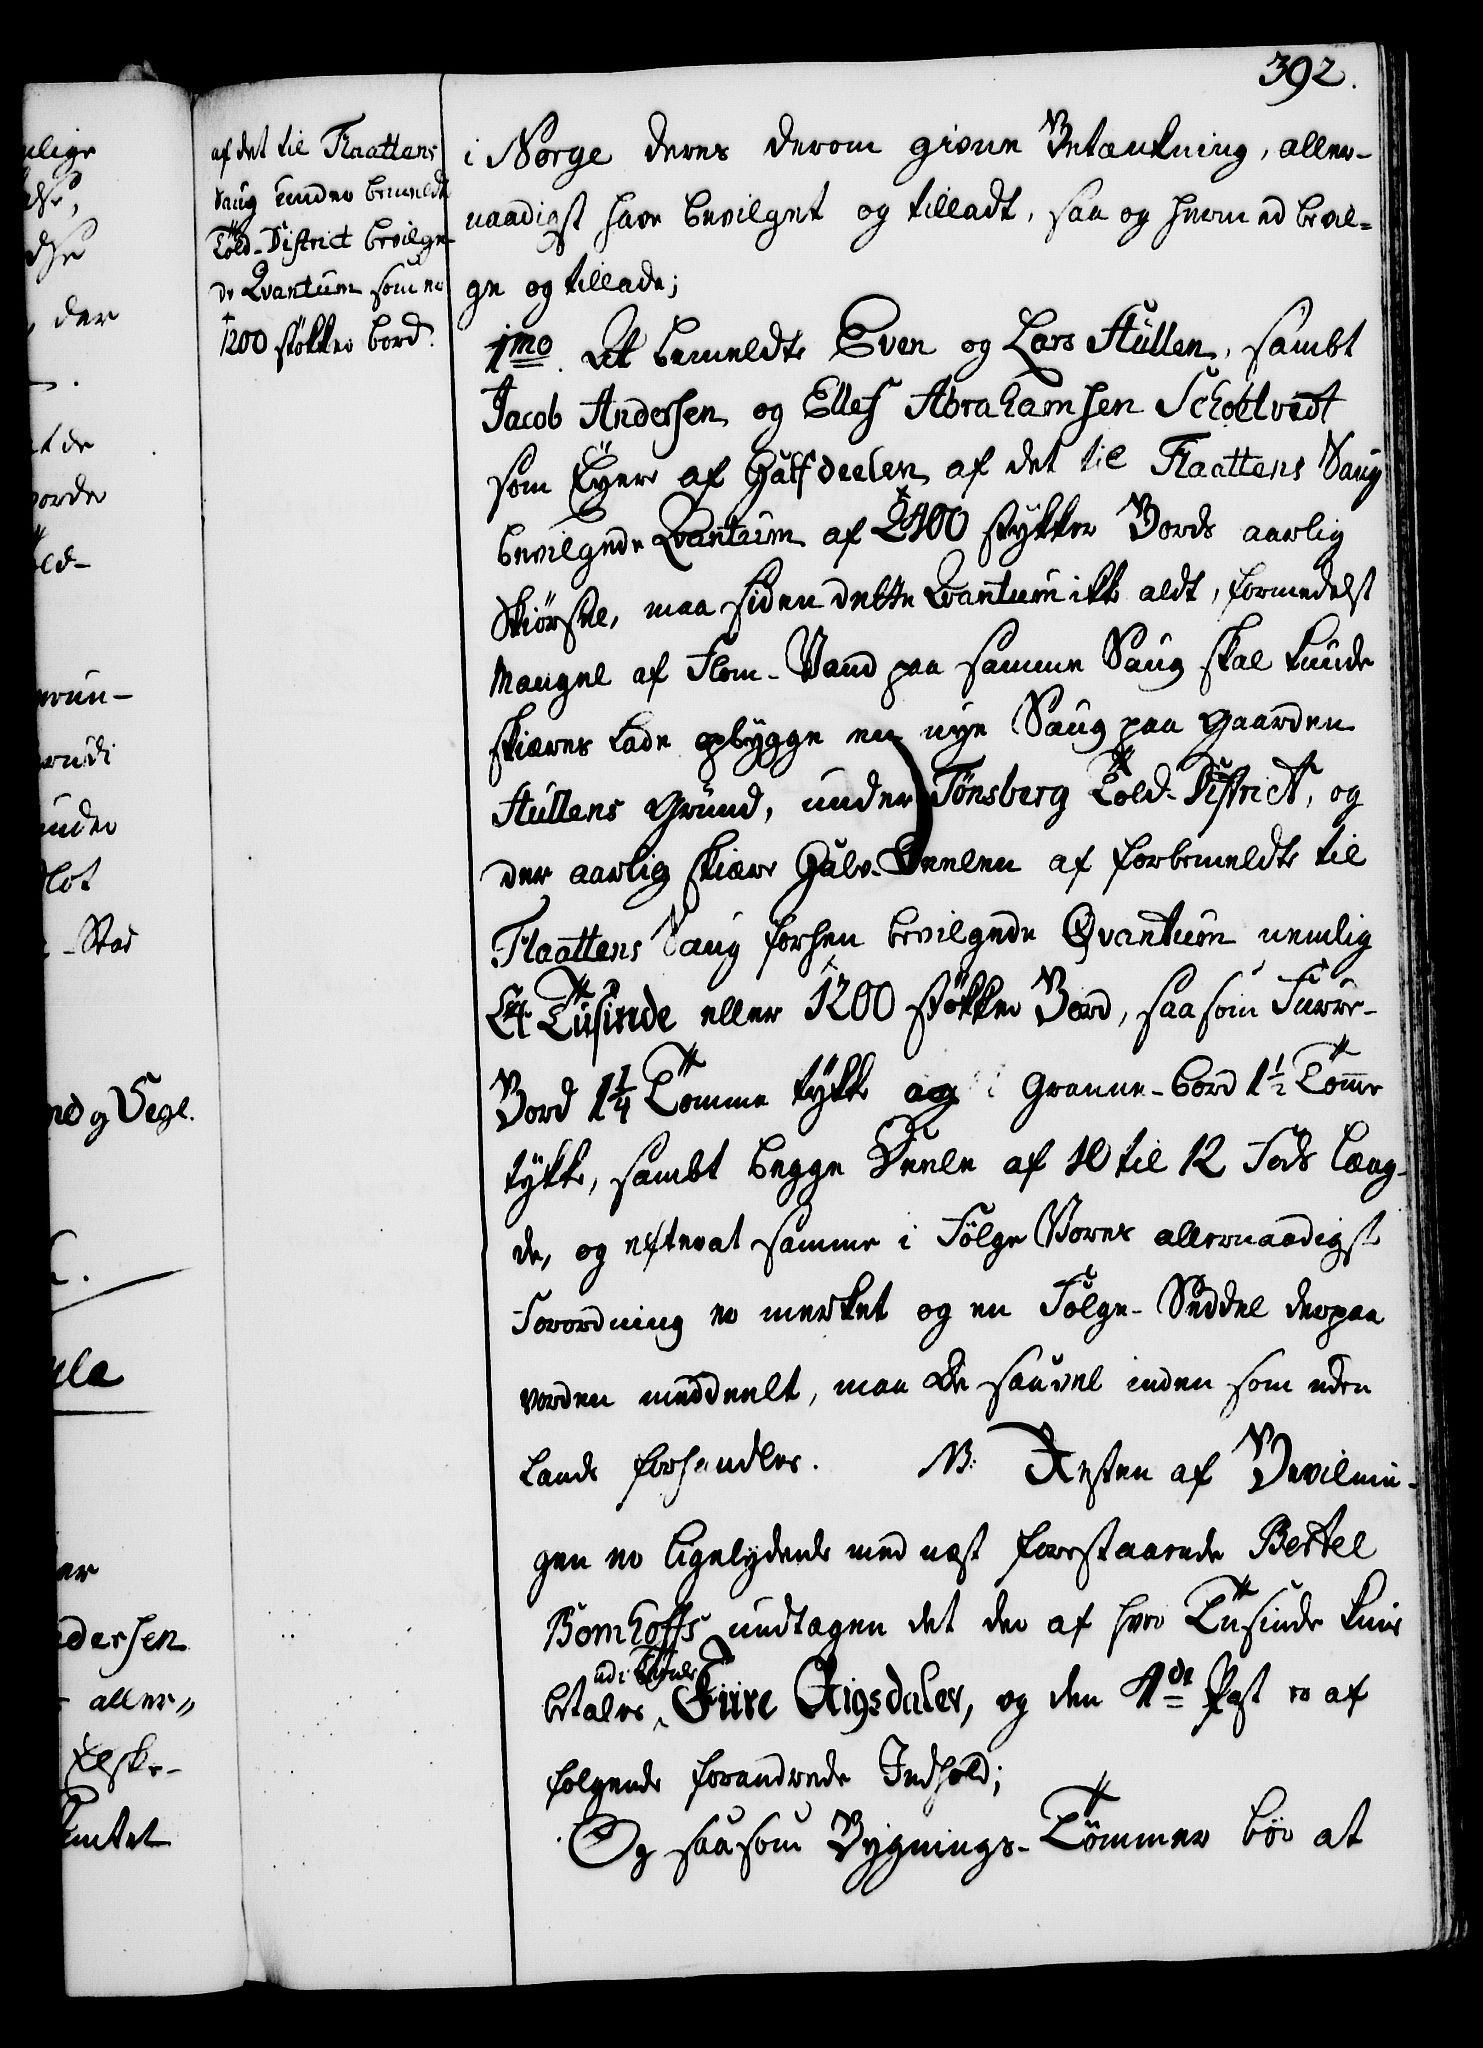 392.
af det til Flaattens
Saug under bemeldte
Told-District bevilge-
de Qvantum som er
1200 støkker bord.
i Norge deres derom givne Betænkning, aller-
naadigst have bevilget og tilladt, saa og hermed bevil-
ge og tillade;
1mo. At bemeldte Even og Lars Hüllen, sambt
Jacob Andersen og Ellef Abrahamsen Schottvedt
som Eyere af Halfdeelen af det til Flaattens Saug
bevilgede Qvantum af 2400 stykker Bords aarlig
Skiørsel, maa siden dette Qvantum ikke aldt, formedelst
Mangel af Flom-Vand paa samme Saug skal kunde
skiæres lade opbygge en nye Saug paa Gaarden
Hüllens Grund, under Tønsberg Told-District, og
der aarlig skiære Halv-Deelen af forbemeldte til
Flaattens Saug forhen bevilgede Qvantum nemlig
Et Tusinde eller 1200 støkker Bord, saasom Furre-
Bord 1 1/4 Tomme tykke og Granne-bord 1 1/2 Tomme
tykke, sambt begge Deele af 10 til 12 Fods Læng-
de, og efterat samme i Følge Vores allernaadigste
Forordning er merket og en Følge-Seddel derpaa
vorden meddeelt, maa De saavel inden som uden
Lands forhandles. NB: Resten af Bevilnin-
gen er ligelydende med næst forestaaende Bertel
Bomhoffs undtagen det der af hver Tusinde kuns
udi Tiende
betales Fiire Rigsdaler, og den 4de Post er af
følgende forandrede Indhold;
Og saasom Bygnings-Tømmer bør at
nlige
else,
der
t de
borde
old-
under
lot
-Stad
nd og Segl.
er
ndersen
aller-
Elske-